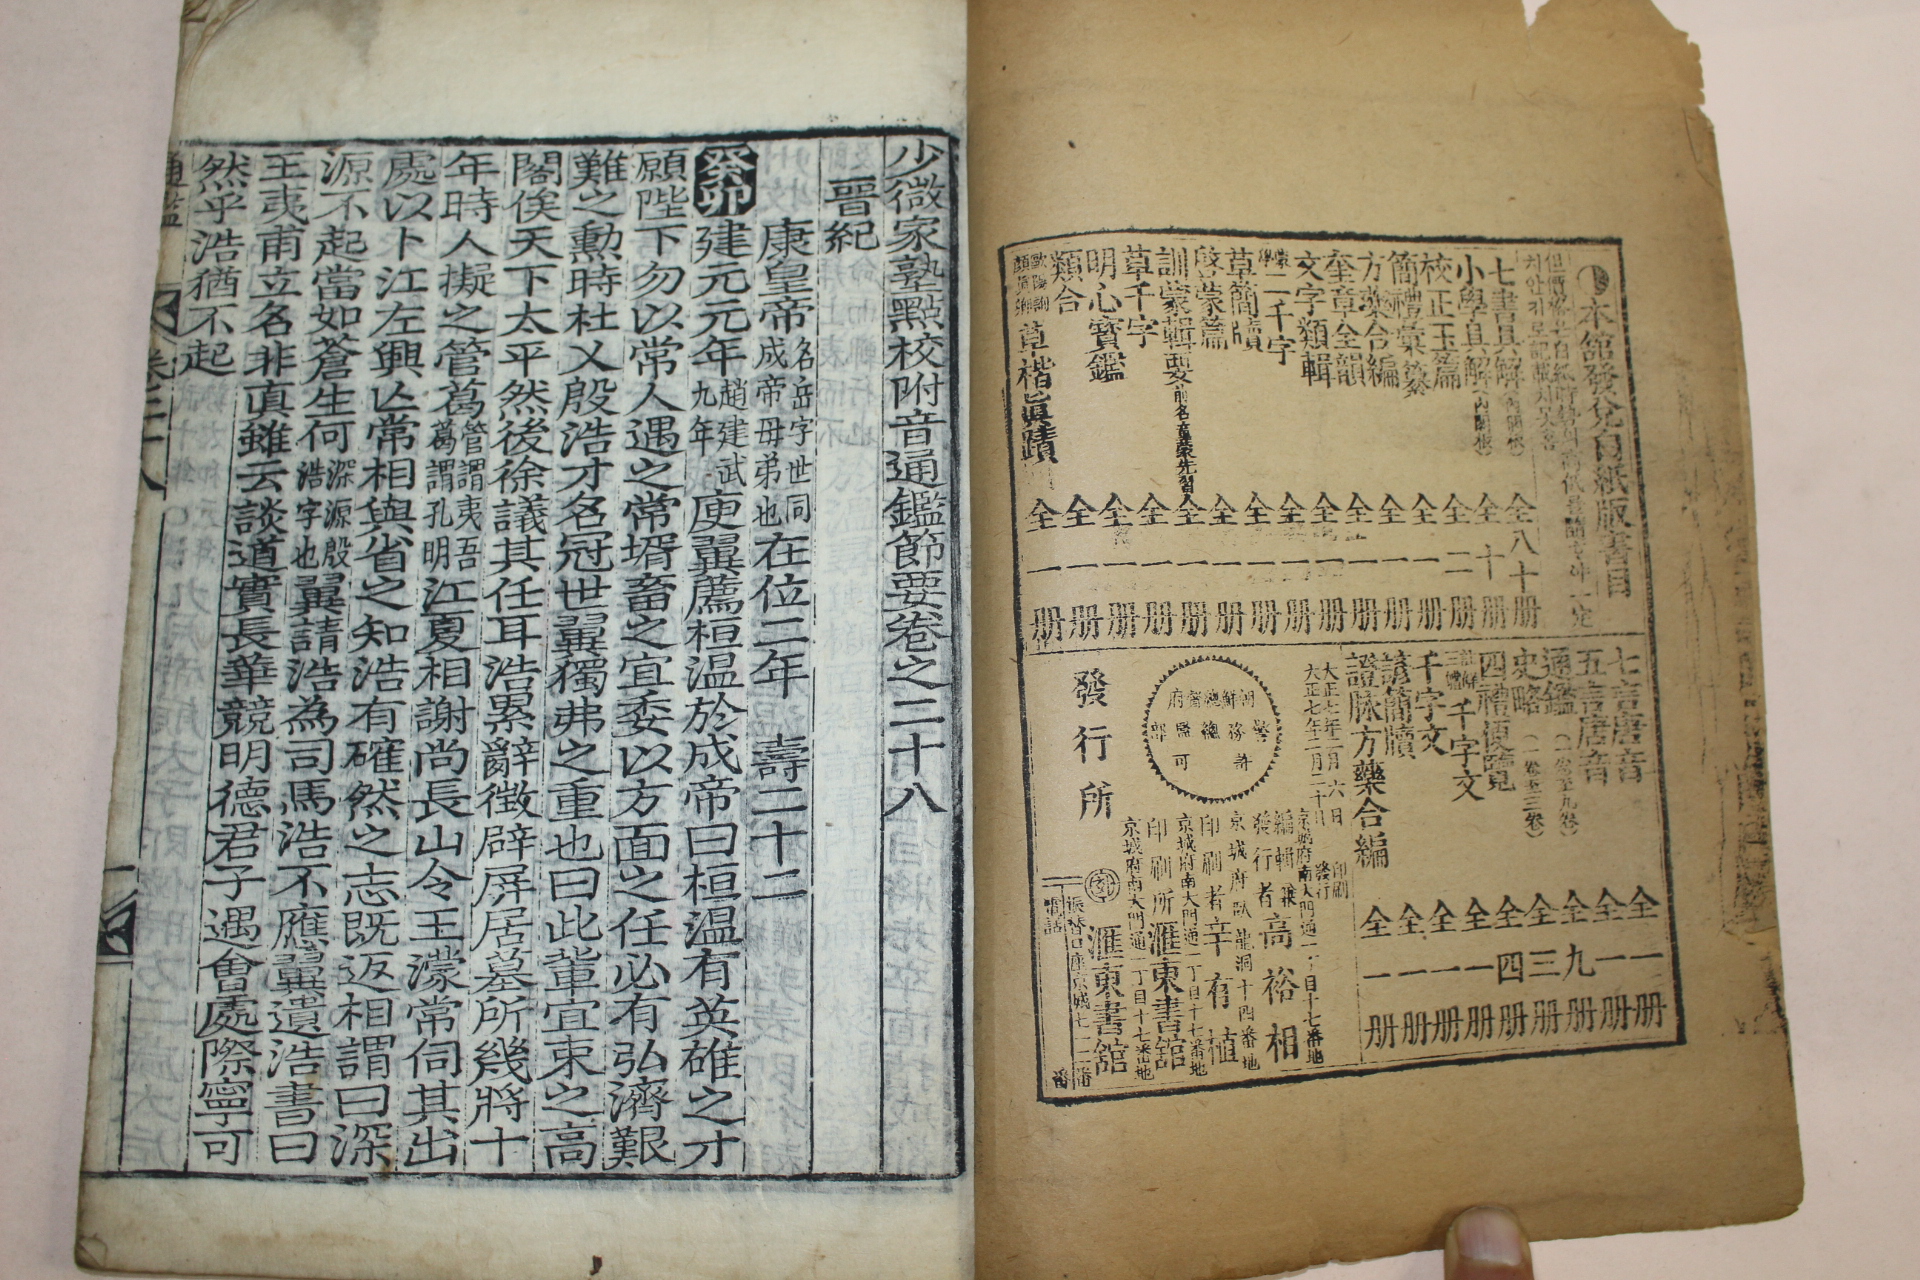 本舘發兌白紙版書目
七書具解 全八十册
小學具解 全十册
校正玉篇 全二册
簡禮彙纂 全一册
方藥合編 全一册
奎章全韻 全一册
文字類輯 全一册
二千字 全一册
草簡牘 全一册
啓蒙篇 全一册
訓蒙輯要 前名童蒙先習 全一册
草千字 全一册
明心寶鑑 全一册
類合 全一册
草楷眞蹟 全一册
七言唐音 全一册
五言唐音 全一册
通鑑 全九册
史略 全三册
四禮便覽 全四册
千字文 全一册
千字文 全一册
諺簡牘 全一册
證脉方藥合編 全一册
大正七年二月六日 印刷
大正七年二月二十日 發行
京城府南大門通一丁目十七番地
編輯兼發行者 高裕相
京城府臥龍洞十四番地
印刷者 辛有植
京城府南大門通一丁目十七番地
印刷所 滙東書舘
京城府南大門通一丁目十七番地
發行所 滙東書舘
少微家塾點校附音通鑑節要卷之二十八
晉紀
康皇帝名岳字世同成帝母弟也在位二年 壽二十二
癸卯建元元年趙建武九年庾翼薦桓温於成帝曰桓温有英雄之才
願陛下勿以常人遇之常壻畜之宜委以方面之任必有弘濟艱
難之勳時杜乂殷浩才名冠世翼獨弗之重也曰此輩宜束之高
閣俟天下太平然後徐議其任耳浩累辭徵辟屏居墓所幾將十
年時人擬之管葛管謂夷吾葛謂孔明江夏相謝尚長山令王濛常伺其出
處以卜江左興亾常相與省之知浩有確然之志既返相謂曰深
源不起當如蒼生何深源殷浩字也翼請浩為司馬浩不應翼遺浩書曰
王夷甫立名非真雖云談道實長華競明德君子遇會處際寧可
然乎浩猶不起
通鑑 卷二十八